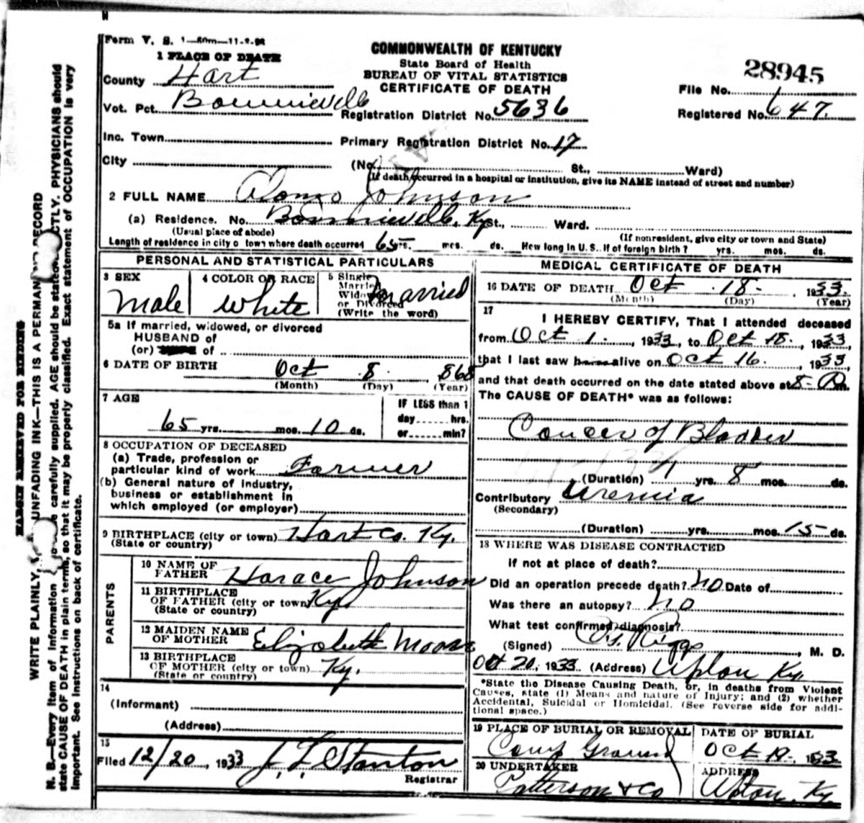 Form V. S. 1—50m—11-2-26
1 PLACE OF DEATH
COMMONWEALTH OF KENTUCKY
State Board of Health
BUREAU OF VITAL STATISTICS
CERTIFICATE OF DEATH
28945
County Hart
File No.
Vot. Pct. Bonnieville
Registration District No. 5636
Registered No. 647
Inc. Town
Primary Registration District No. 17
City
(No. St., Ward)
(If death occurred in a hospital or institution, give its NAME instead of street and number)
2 FULL NAME Alonzo Johnson
(a) Residence. No. Bonnieville, Ky. St., Ward.
(Usual place of abode)
(If nonresident, give city or town and State)
Length of residence in city or town where death occurred 65 yrs. mos. ds. How long in U. S., if of foreign birth? yrs. mos. ds.
PERSONAL AND STATISTICAL PARTICULARS
3 SEX
Male
4 COLOR OR RACE
White
5 Single
Married
Widowed
or Divorced
(Write the word)
Married
5a If married, widowed, or divorced
HUSBAND of
(or) of
6 DATE OF BIRTH Oct 8 868
(Month) (Day) (Year)
7 AGE
65 yrs. mos. 10 ds.
IF LESS than 1
day hrs.
or min?
8 OCCUPATION OF DECEASED
(a) Trade, profession or
particular kind of work Farmer
(b) General nature of industry,
business or establishment in
which employed (or employer)
9 BIRTHPLACE (city or town) Hart Co. Ky.
(State or country)
PARENTS
10 NAME OF
FATHER Horace Johnson
11 BIRTHPLACE
OF FATHER (city or town) Ky.
(State or country)
12 MAIDEN NAME
OF MOTHER Elizabeth
13 BIRTHPLACE
OF MOTHER (city or town) Ky.
(State or country)
14
(Informant)
(Address)
15
Filed 12/20, 1933 J. T. Stanton
Registrar
MEDICAL CERTIFICATE OF DEATH
16 DATE OF DEATH Oct 18, 1933
(Month) (Day) (Year)
17
I HEREBY CERTIFY, That I attended deceased
from Oct 1, 1933, to Oct 18, 1933,
that I last saw alive on Oct 16, 1933,
and that death occurred on the date stated above at 8 P.
The CAUSE OF DEATH* was as follows:
Cancer of Bladder
(Duration) yrs. 8 mos. ds.
Contributory Uremia
(Secondary)
(Duration) yrs. mos. 15 ds.
18 WHERE WAS DISEASE CONTRACTED
If not at place of death?
Did an operation precede death? no Date of
Was there an autopsy? no
What test confirmed diagnosis?
(Signed) Riggs, M. D.
Oct 20, 1933 (Address) Upton Ky
*State the Disease Causing Death, or, in deaths from Violent
Causes, state (1) Means and nature of Injury; and (2) whether
Accidental, Suicidal or Homicidal. (See reverse side for addi-
tional space.)
19 PLACE OF BURIAL OR REMOVAL
Camp Ground
DATE OF BURIAL
Oct 19, 1933
20 UNDERTAKER
Patterson & Co
ADDRESS
Upton, Ky
MARGIN RESERVED FOR BINDING
WRITE PLAINLY, UNFADING INK—THIS IS A PERMAN RECORD
N. B.—Every item of information carefully supplied. AGE should be stated CTLY. PHYSICIANS should
state CAUSE OF DEATH in plain terms, so that it may be properly classified. Exact statement of OCCUPATION is very
important. See instructions on back of certificate.